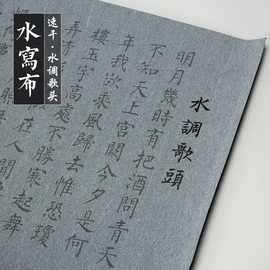 速干·水调歌头
水寫布
水調歌頭
明月幾時有把酒問青天
不知天上宮闕今夕是何
年我欲乘風歸去惟恐瓊
樓玉宇高處不勝寒起舞
弄清影何似在人間